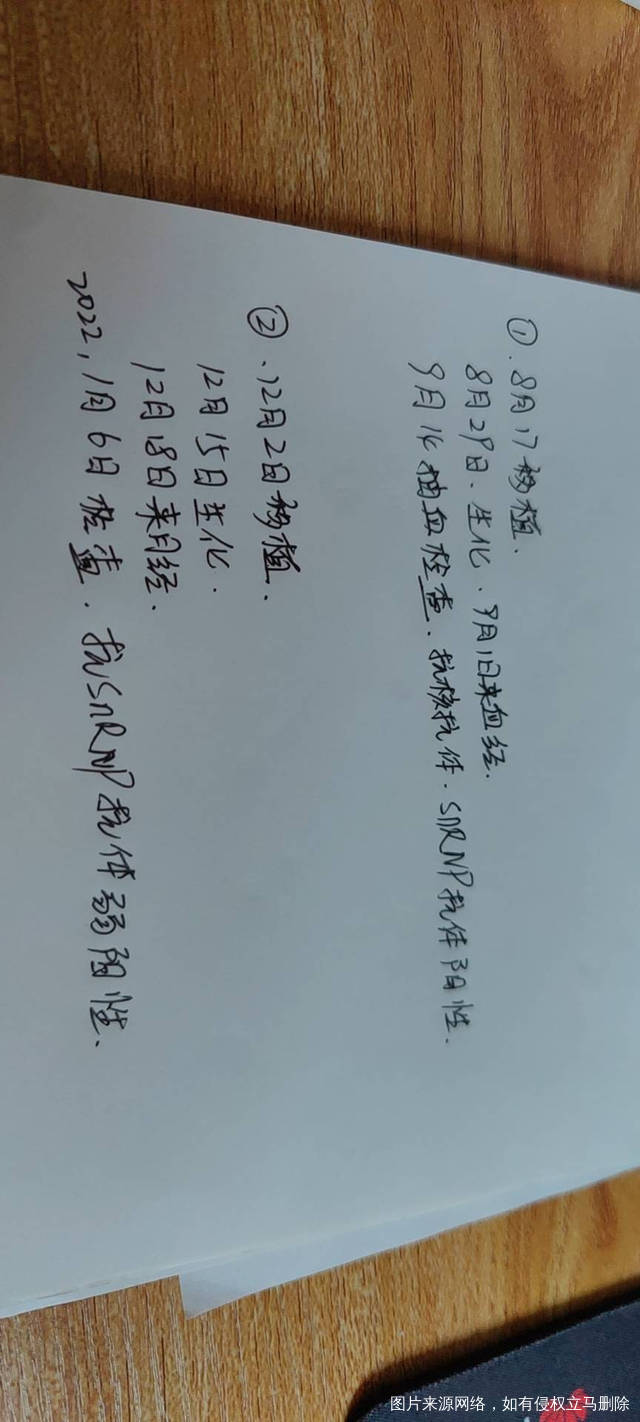 ①.8月17移植.
8月29日、生化、9月1日来血经.
9月14抽血检查.抗核抗体.SnRNP抗体阳性.
②、12月2日移植.
12月15日生化.
12月18日来月经.
2022,1月6日检查.抗SnRNP抗体弱阳性.
图片来源网络，如有侵权立马删除